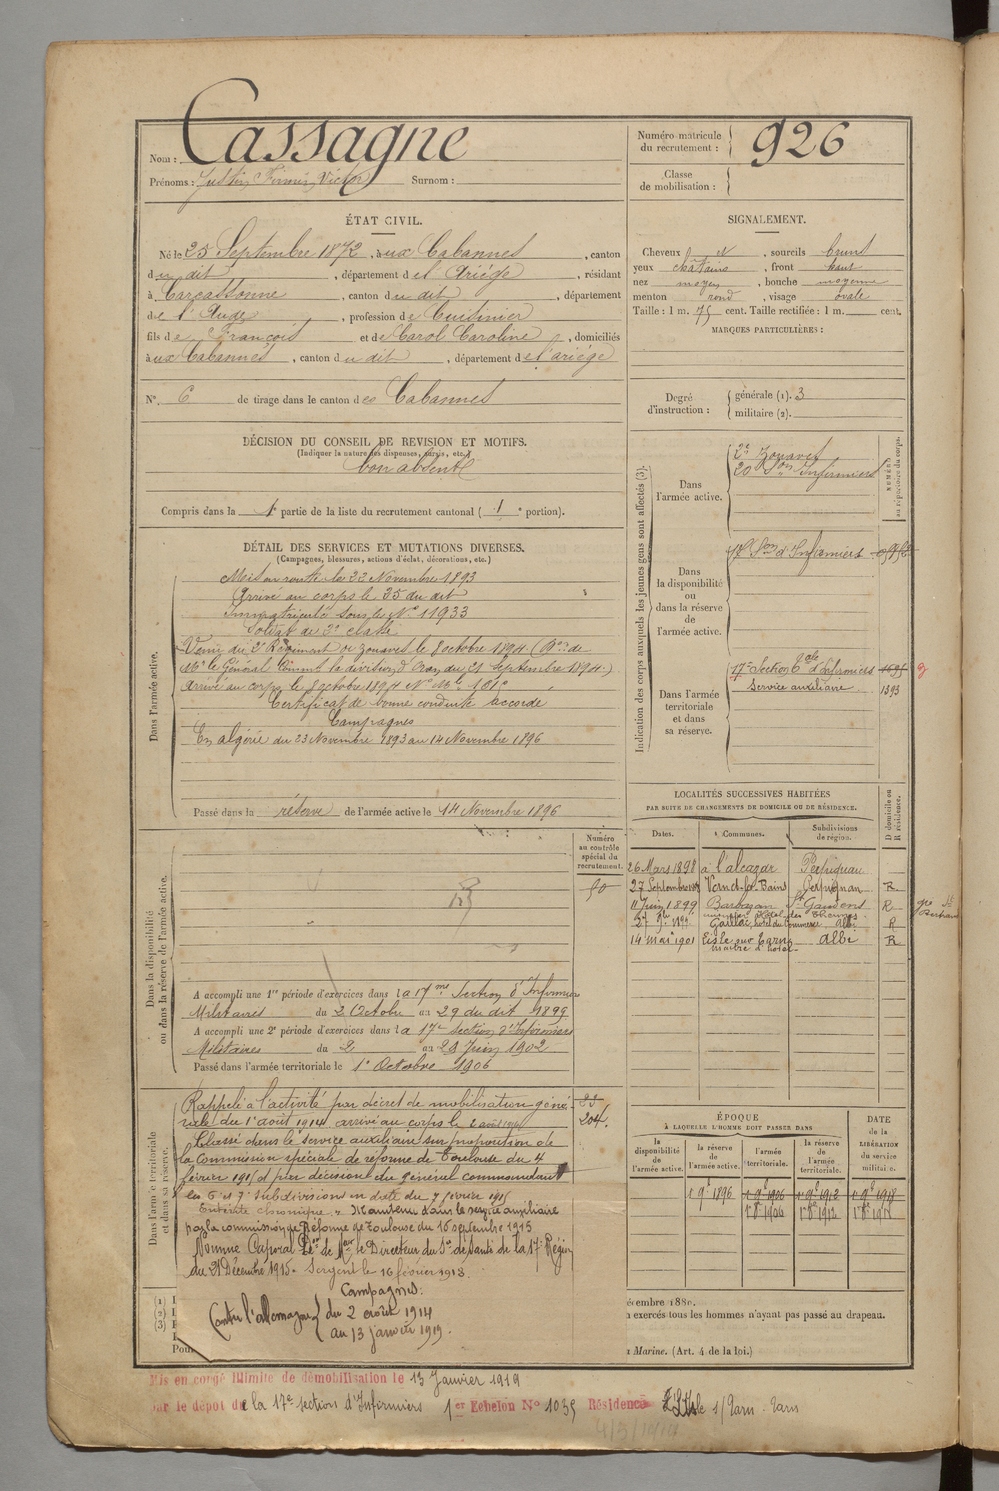 Nom : Cassagne
Prénoms : Justin Firmin Victor Surnom :
Numéro matricule du recrutement : 926
Classe de mobilisation :
ÉTAT CIVIL.
Né le 25 Septembre 1872, à ux Cabannes, canton
du dit, département de l'Ariège, résidant
à Carcassonne, canton du dit, département
de l'Aude, profession de Cuisinier
fils de François et de Carol Caroline, domiciliés
à ux Cabannes, canton du dit, département de l'ariège
N° 6 de tirage dans le canton des Cabannes
SIGNALEMENT.
Cheveux et, sourcils bruns
yeux châtains, front haut
nez moyen, bouche moyenne
menton rond, visage ovale
Taille : 1 m. 75 cent. Taille rectifiée : 1 m. cent.
MARQUES PARTICULIÈRES :
Degré d'instruction : générale (1). 3
militaire (2).
DÉCISION DU CONSEIL DE REVISION ET MOTIFS.
(Indiquer la nature des dispenses, sursis, etc.)
bon absent
Compris dans la 1e partie de la liste du recrutement cantonal (1e portion).
DÉTAIL DES SERVICES ET MUTATIONS DIVERSES.
(Campagnes, blessures, actions d'éclat, décorations, etc.)
Dans l'armée active.
Mis en route le 22 Novembre 1893
Arrivé au corps le 25 du dit
Immatriculé sous le N° 11933
Soldat de 2e classe
Venu du 2e Régiment de zouaves le 8 octobre 1894. (
Mr le Général Commt la division d'Oran du 21 Septembre 1894.)
Arrivé au corps le 8 octobre 1894 N° Mle
Certificat de bonne conduite accordé
Campagnes
En algérie du 23 Novembre 1893 au 14 Novembre 1896
Passé dans la réserve de l'armée active le 14 Novembre 1896
Dans la disponibilité ou dans la réserve de l'armée active.
Numéro au contrôle spécial du recrutement.
A accompli une 1re période d'exercices dans la 17me Section d'Infirmiers
Militaires du 2 Octobre au 29 du dit 1899
A accompli une 2e période d'exercices dans la 17e Section d'Infirmiers
Militaires du 2 au 29 Juin 1902
Passé dans l'armée territoriale le 1er Octobre 1906
Dans l'armée territoriale et dans sa réserve.
Rappelé à l'activité par décret de mobilisation géné-
rale du 1er août 1914 arrivé au corps le 2 août 1914
204.
Classé dans le service auxiliaire sur proposition de
la Commission spéciale de réforme de Toulouse du 4
février 1915 et par décision du général commandant
les 6 et 7e subdivisions en date du 7 février 1915
Entérite chronique ". Maintenu dans le service auxiliaire
par la commission de Réforme de Toulouse du 16 septembre 1915
Nommé Caporal Don de Mr le Directeur du Sce de Santé de la 17e Région
du 21 Décembre 1915. Sergent le 16 février 1918.
Campagnes :
Contre l'allemagne { du 2 août 1914
au 13 janvier 1919.
Indication des corps auxquels les jeunes gens sont affectés (3).
NUMÉRO au répertoire du corps.
Dans l'armée active.
2e Zouaves
20 Son Infirmiers
Dans la disponibilité ou dans la réserve de l'armée active.
17e Son d'Infirmiers
Dans l'armée territoriale et dans sa réserve.
17e Section d'Infirmiers
Service auxiliaire 1393
LOCALITÉS SUCCESSIVES HABITÉES
PAR SUITE DE CHANGEMENTS DE DOMICILE OU DE RÉSIDENCE.
Dates. Communes. Subdivisions de région. D domicile ou R résidence.
26 Mars 1898 à l'alcazar Perpignan
27 Septembre Vernet-les-Bains Perpignan R
11 Juin 1899 Barbazan St Gaudens R
Gaillac, hôtel du Commerce Albi R
14 mai 1901 Lisle sur Tarn albi R
maître d'hôtel
ÉPOQUE
À LAQUELLE L'HOMME DOIT PASSER DANS
la disponibilité de l'armée active. la réserve de l'armée active. l'armée territoriale. la réserve de l'armée territoriale.
DATE de la LIBÉRATION du service militaire.
1 9e 1896 1 9e 1906 1 9e 1912 1 9e 1918
1 8e 1906 1 8e 1912
écembre 1880.
n exercés tous les hommes n'ayant pas passé au drapeau.
a Marine. (Art. 4 de la loi.)
(1)
(2)
(3)
Pour
Mis en congé illimité de démobilisation le 13 Janvier 1919
Par le dépôt de la 17e section d'Infirmiers 1er Echelon N° 1035 Résidence L'Isle s/ Tarn. Tarn